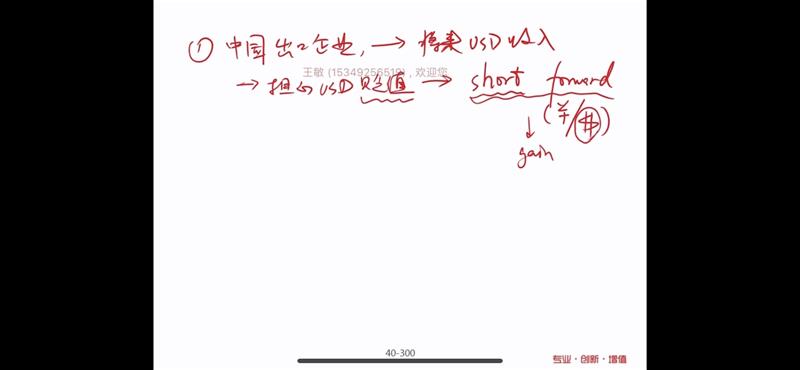 ① 中国出口企业, → 将来USD收入
王敏 (15349256519) , 欢迎您
→ 担心USD贬值 → short forward
(¥/$)
↓
gain
40-300
专业·创新·增值